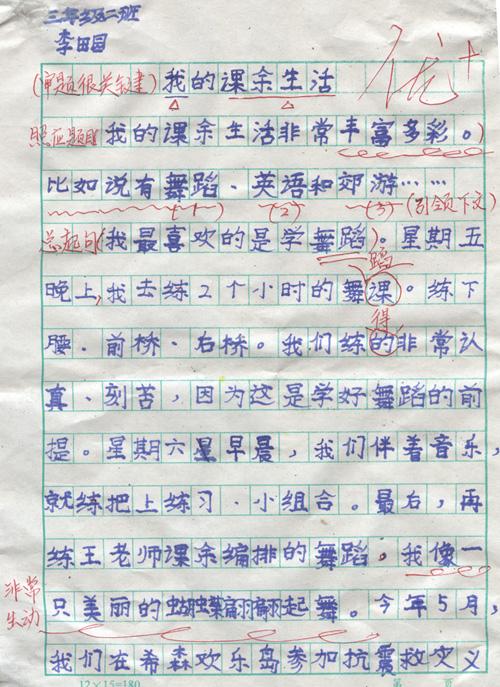 三年级二班
李田园
(审题很关键) 我的课余生活
照应题目 我的课余生活非常丰富多彩。)
比如说有舞蹈、英语和郊游……
(1) (2) (3) (引领下文)
总起句(我最喜欢的是学舞蹈)。星期五
蹈
晚上,我去练2个小时的舞课。练下
得
腰、前桥、右桥。我们练的非常认
真、刻苦,因为这是学好舞蹈的前
提。星期六星早晨,我们伴着音乐,
就练把上练习、小组合。最后,再
练王老师课余编排的舞蹈。我像一
非常
生动
只美丽的蝴蝶翩翩起舞。今年5月,
我们在希森欢乐岛参加抗震救灾义
12×15=180
第 页
优+